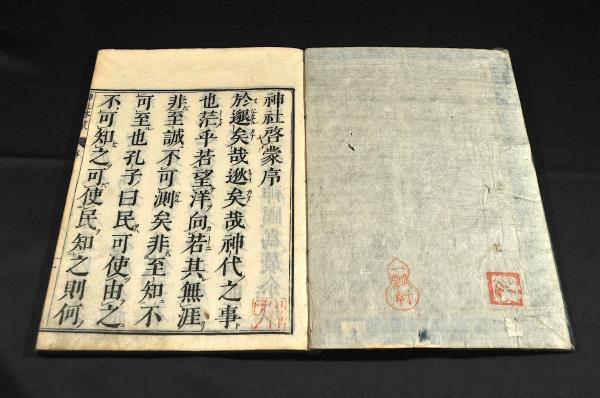 神社啓蒙序
於邈矣哉逖矣哉神代之事
也茫乎若望洋向若其無涯
非至誠不可測矣非至知不
可至也孔子曰民可使由之
不可知之可使民知之則何